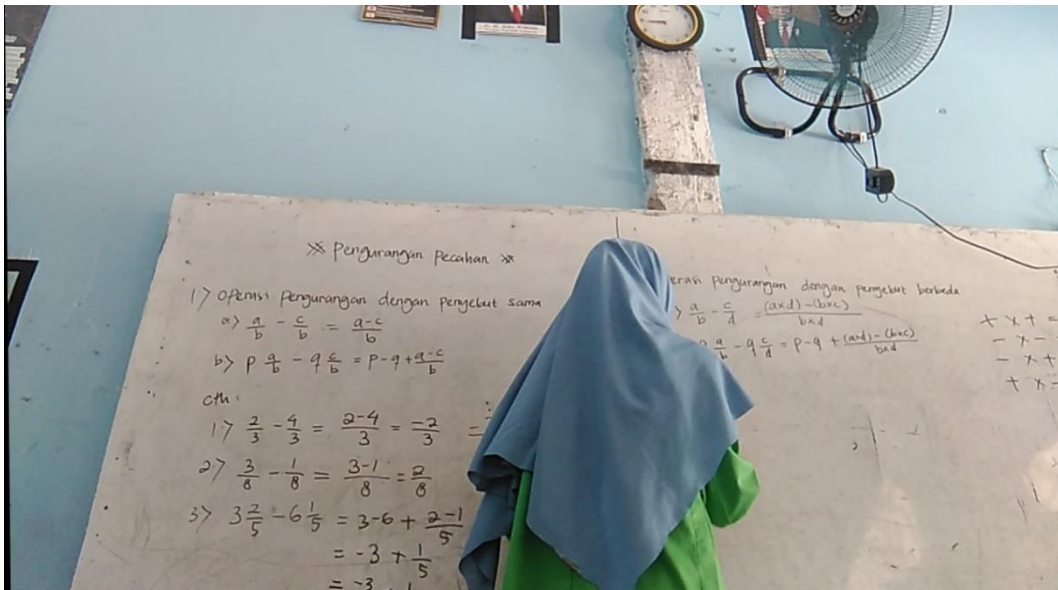 ※ Pengurangan Pecahan ※
1) Operasi Pengurangan dengan Penyebut sama
a) a/b - c/b = a-c/b
b) P a/b - q c/b = P-q + a-c/b
cth:
1) 2/3 - 4/3 = 2-4/3 = -2/3 =
2) 3/8 - 1/8 = 3-1/8 = 2/8
3) 3 2/5 - 6 1/5 = 3-6 + 2-1/5
= -3 + 1/5
= -3
Pengurangan dengan penyebut berbeda
a/b - c/d = (axd)-(bxc)/bxd
a/b - q c/d = P-q + (axd)-(bxc)/bxd
+ x + =
- x -
- x +
+ x -